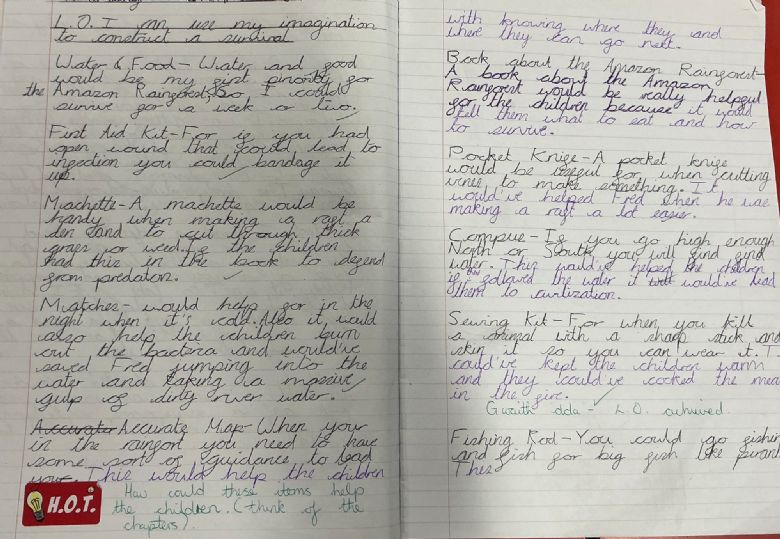 L.O. I can use my imagination
to construct a survival
Water & Food - Water and good
would be my first priority for
the Amazon Rainforest, So I could
survive for a week or two.
First Aid Kit - For if you had
open wound that could lead to
infection you could bandage it
up.
Machette - A machette would be
handy when making a raft a
den and to cut through thick
grass or weed. If the children
had this in the book to defend
from predators.
Matches - would help for in the
night when it's cold. Also it would
also help the children burn
out the bacteria and would've
saved Fred jumping into the
water and taking a massive
gulp of dirty river water.
Accurate Accurate Map - When your
in the you need to have
some sort of guidance to lead
your. This would help the children
H.O.T.
How could these items help
the children. (think of the
chapters).
with knowing where they and
where they can go next.
Book about the Amazon Rainforest -
A book about the Amazon
Rainforest would be really helpful
for the children because it would
tell them what to eat and how
to survive.
Pocket Knife - A pocket knife
would be useful for when cutting
vines to make something. It
would've helped Fred when he was
making a raft a lot easyer.
- If you go high enough
North or South you will find
water. This would've helped the children
if followed the water it would've lead
them to
Sewing Kit - For when you kill
a animal with a sharp stick and
skin it so you can wear it. I
could've kept the children warm
and they could've cooked the mea
in the fire.
Gwaith dda - L.O. achieved.
Fishing Rod - You could go fishin
and fish for big fish like pirant
This